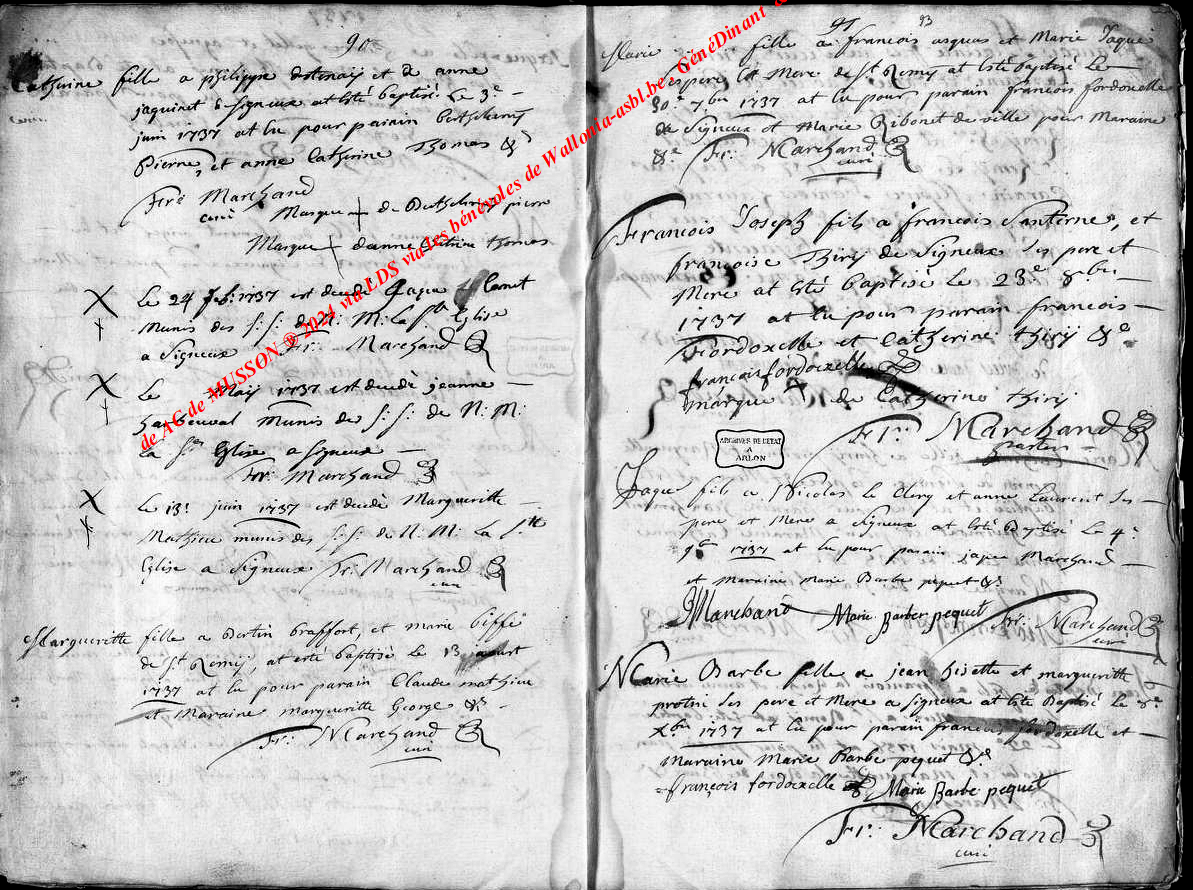 90
Catherine fille a philippe dotenaij et de anne
jaquinet de signeux at esté baptisé le 3e
juin 1737 at eu pour parain
Pierre, et anne Catherine Thomas &c
Frs Marchand
curé Marque de pierre
Marque danne Catrine thomas
Le 24 feb: 1737 est decedé Jaque
munis des s: s: de N: M: la Ste Eglise
a Signeux Fr: Marchand
Le Maij 1737 est decedé jeanne
munis des s: s: de N: M:
la Ste Eglise a signeux
Fr: Marchand
Le 13: juin 1737 est decedé Margueritte
Mathieu munis des s: s: de N: M: la Ste
Eglise a Signeux Fr: Marchand
curé
Margueritte fille a Bertin braffort, et marie
de St Remij, at esté baptisé le 13
1737 at eu pour parain Claude mathieu
et Maraine margueritte George &c
Fr: Marchand
curé
91
93
Marie fille a francois et Marie Jaque
ses pere et Mere de St Remij at esté baptisé Le
30e 7bre 1737 at eu pour parain francois fordoxelle
de Signeux et Marie Ribonet de ville pour Maraine
&c Fr: Marchand
curé
Francois Joseph fils a francois Santerne, et
françoise Thirij de Signeux ses pere et
Mere at esté baptisé le 23e 8bre
1737 at eu pour parain francois
Fordoxelle et Catherine thirij &c
francois fordoxelle
marque de Catherine thirij
Fr: Marchand
pastor
ARCHIVES DE L'ETAT
A
ARLON
Jaque fils a Nicolas le Clerq et anne Laurent ses
pere et Mere a signeux at esté Baptisé le 4e
9bre 1737 at eu pour parain jaque Marchand
et maraine marie Barbe pequet &c
J Marchand Marie Barbe pequet Fr: Marchand
curé
Marie Barbe fille a jean Gisette et margueritte
protin ses pere et Mere a signeux at esté Baptisé le 8e
Xbre 1737 at eu pour parain francois fordoxelle et
Maraine Marie Barbe pequet &c
françois fordoxelle Marie Barbe pequet
Fr: Marchand
curé
de AG de MUSSON ® 2024 via LDS via les bénévoles de Wallonia-asbl.be, GénéDinant